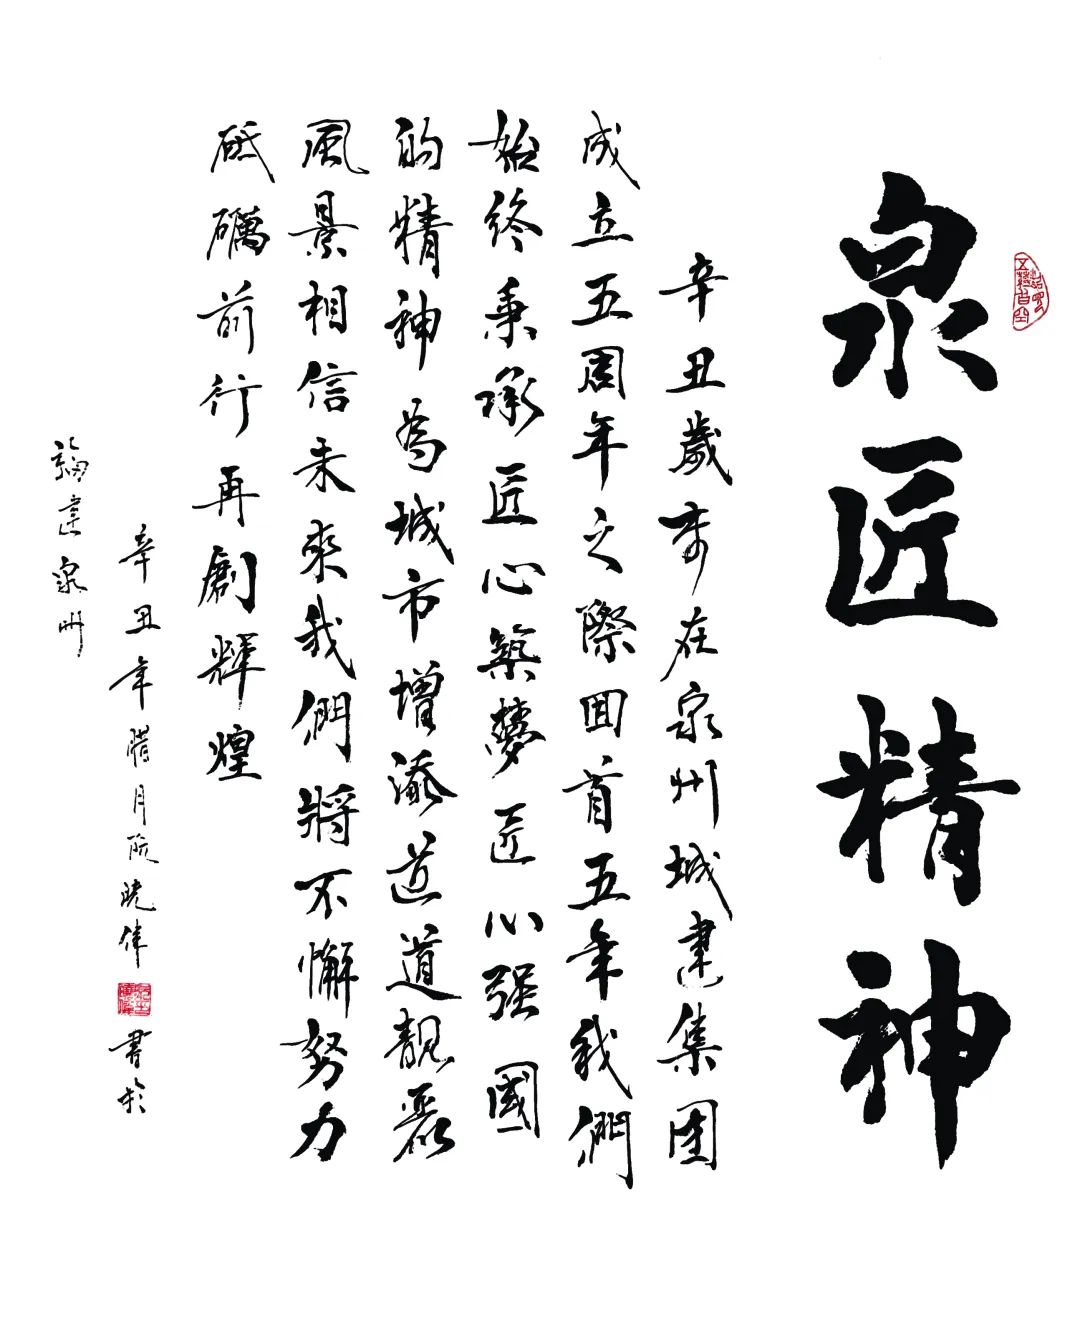 泉匠精神
辛丑歲在泉州城建集團
成立五周年之際回首五年我們
始終秉承匠心築夢匠心强國
的精神為城市增添道道靚麗
風景相信未來我們將不懈努力
砥礪前行再創輝煌
辛丑年腊月阮晓偉書於
福建泉州